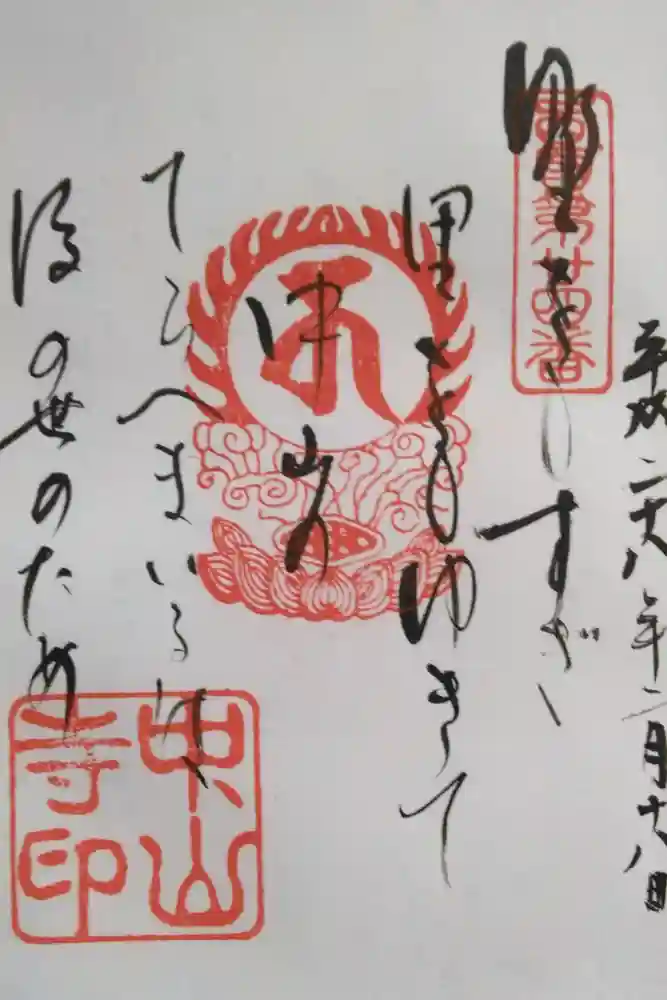 平成二十八年二月十八日
西國第廿四番
野をもすぎ
里をもゆきて
中山の
てらへまいるは
後の世のため
中山寺印